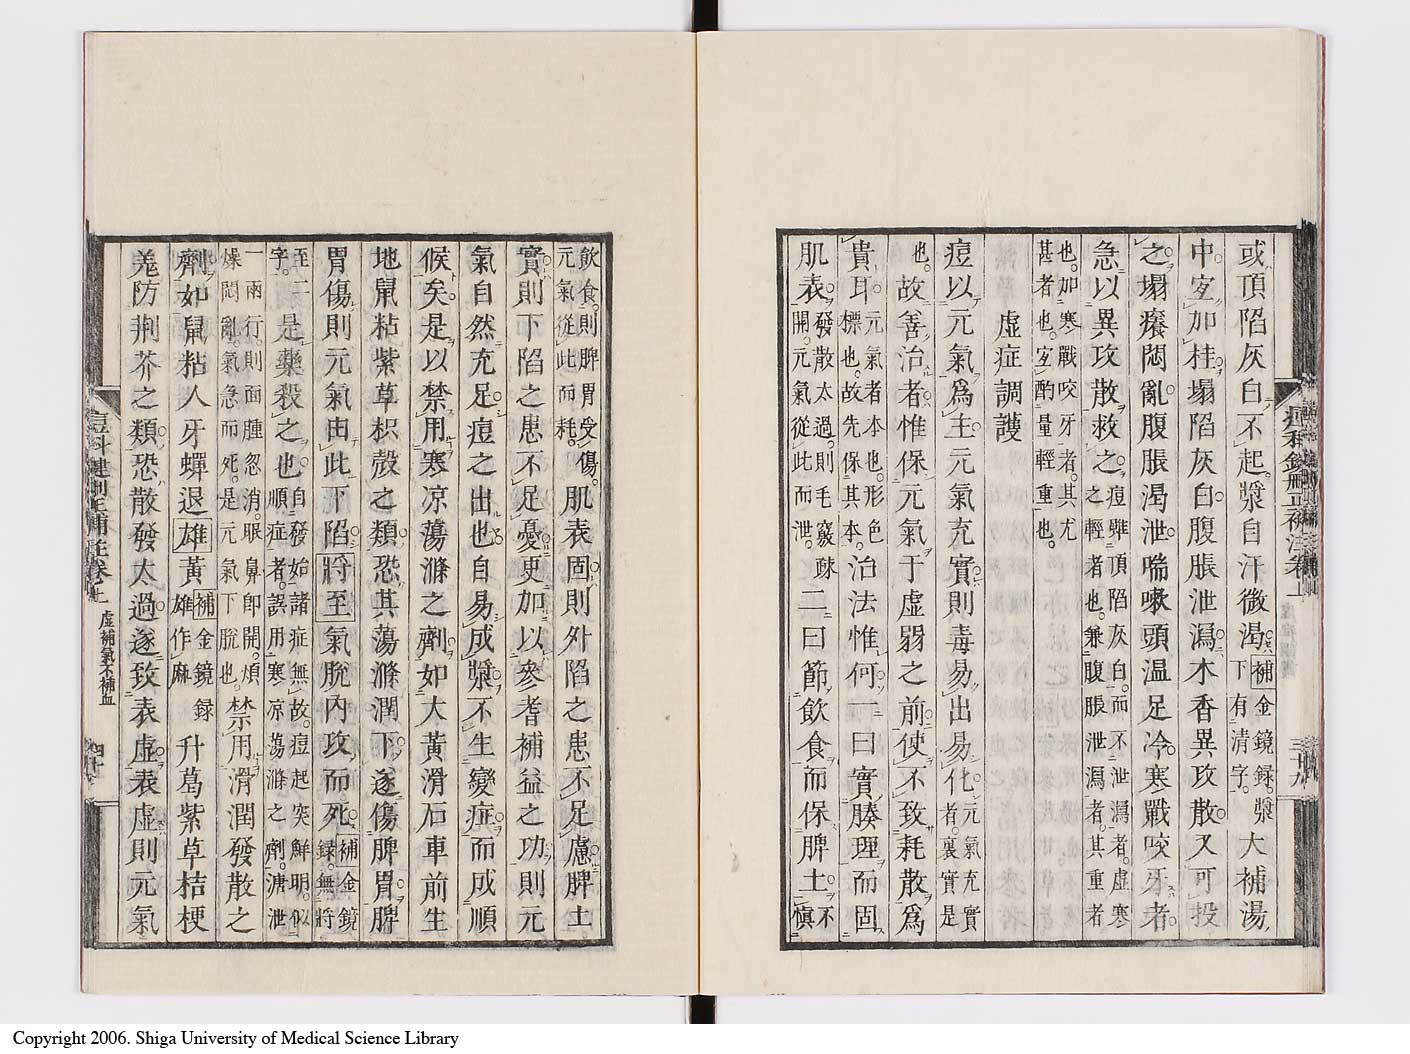 或頂陷灰白不起漿自汗微渴補金鏡錄漿下有清字大補湯
中宜加桂塌陷灰白腹脹泄瀉木香異攻散又可投
之塌癢悶亂腹脹渴泄喘嗽頭温足冷寒戰咬牙者
急以異攻散救之痘雖頂陷灰白而不泄瀉者虛寒之輕者也兼腹脹泄瀉者其重者
也加寒戰咬牙者其尤甚者也宜酌量輕重也
虛症調護
痘以元氣爲主元氣充實則毒易出易化元氣充實者裏實是
也故善治者惟保元氣于虛弱之前使不致耗散爲
貴耳元氣者本也形色標也故先保其本治法惟何一曰實腠理而固
肌表發散太過則毛竅疎開元氣從此而泄二曰節飲食而保脾土不慎
飲食則脾胃受傷元氣從此而耗肌表固則外陷之患不足慮脾土
實則下陷之患不足憂更加以參耆補益之功則元
氣自然充足痘之出也自易成漿不生變症而成順
候矣是以禁用寒凉蕩滌之劑如大黃滑石車前生
地鼠粘紫草枳殼之類恐其蕩滌潤下遂傷脾胃脾
胃傷則元氣由此下陷將至氣脫內攻而死補金鏡錄無將
至二字是藥殺之也自發始諸症無故痘起突鮮明似順症者誤用寒凉蕩滌之劑溏泄
一兩行則面腫忽消眼鼻卽開煩燥悶亂氣急而死是元氣下脫也禁用滑潤發散之
劑如鼠粘人牙蟬退雄黃補金鏡録雄作麻升葛紫草桔梗
羗防荆芥之類恐散發太過遂致表虛表虛則元氣
虛補氣不補血
三十九
四十
Copyright 2006. Shiga University of Medical Science Library